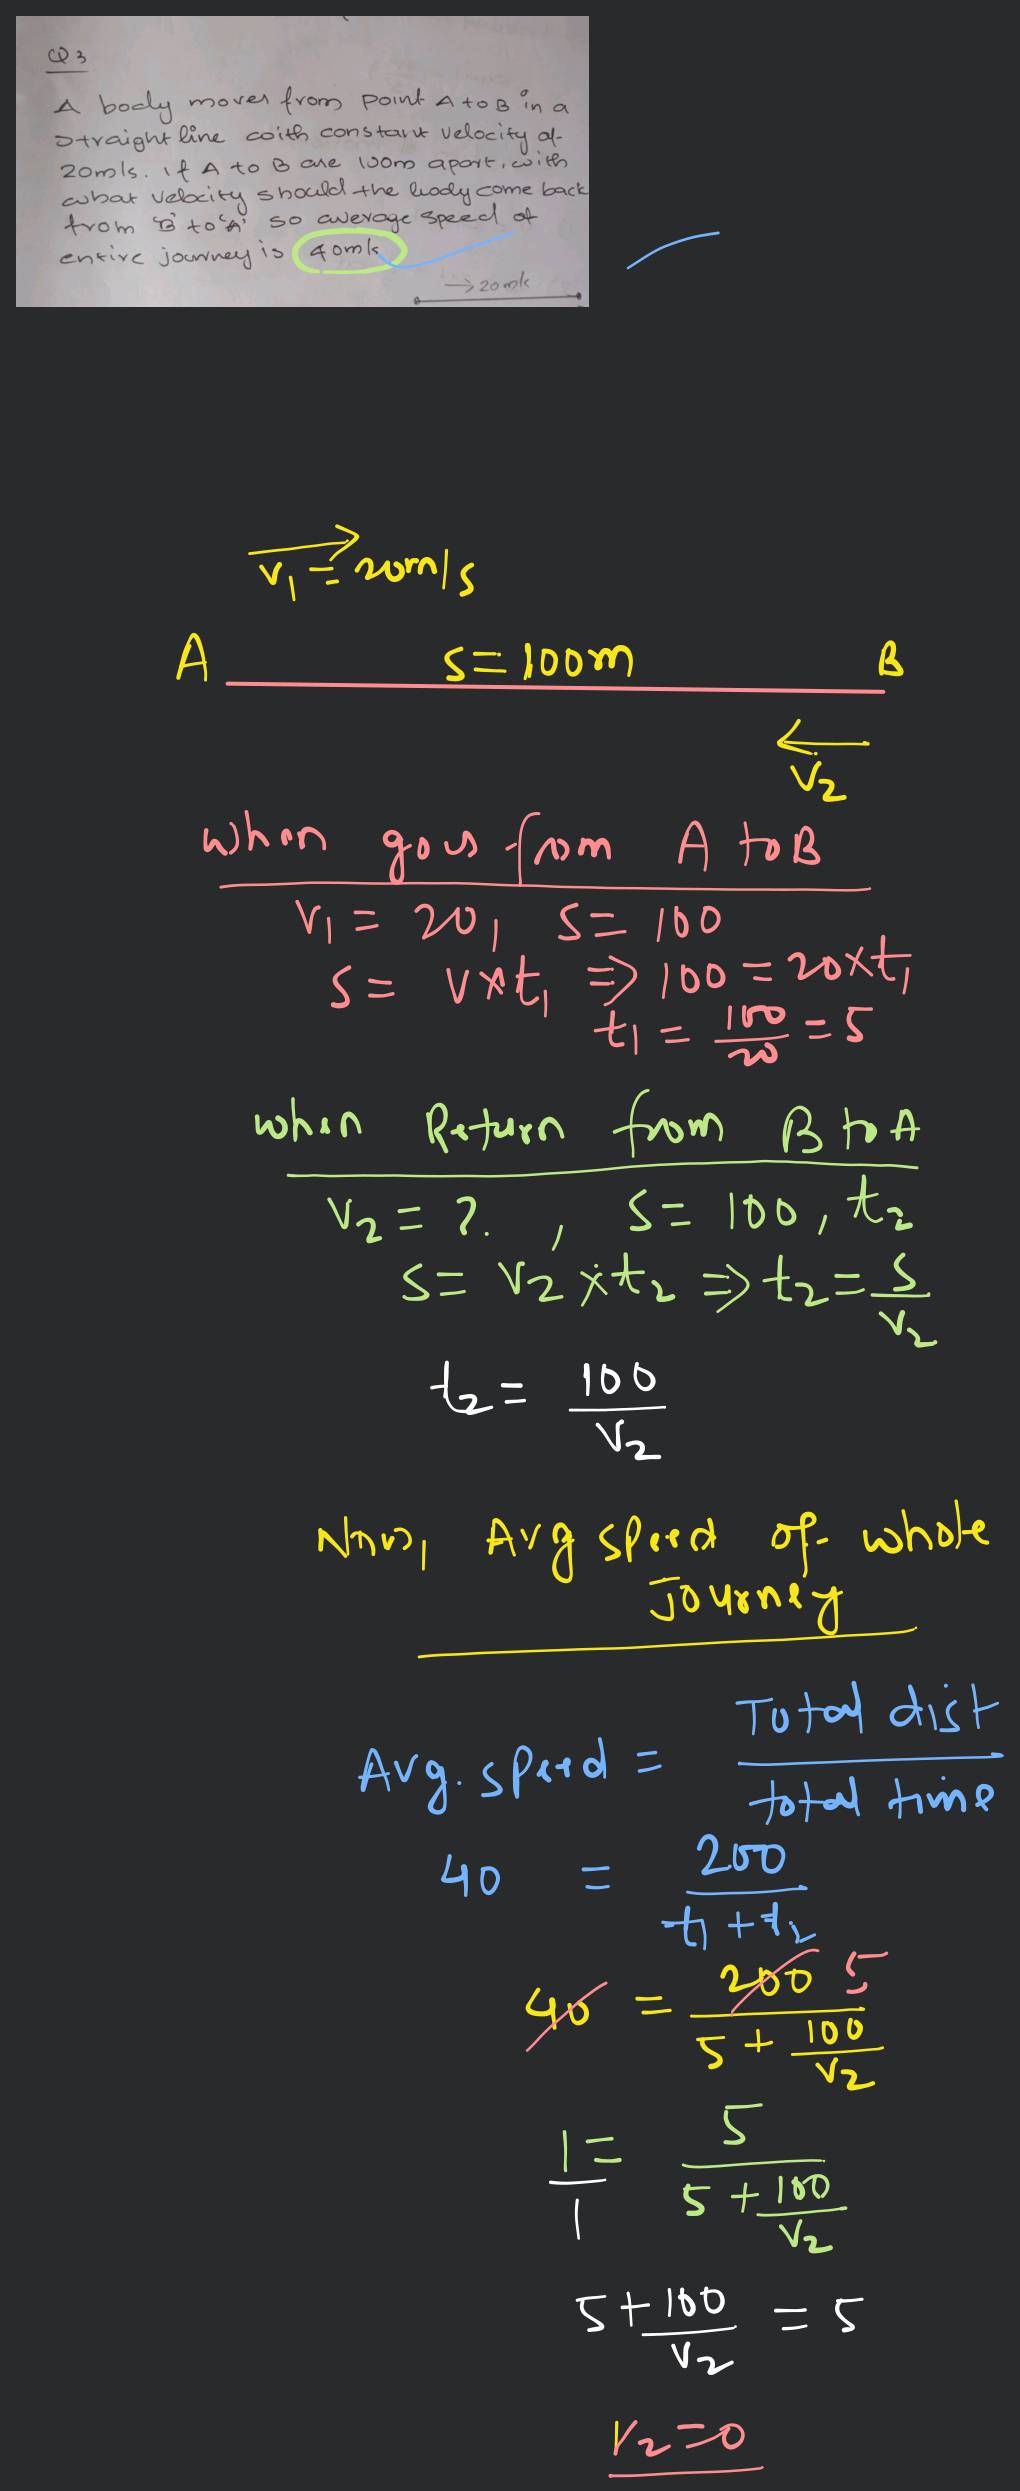 Q 3
A body moves from point A to B in a
straight line with constant velocity of
20m/s. If A to B are 100m apart, with
what velocity should the body come back
from 'B' to 'A' so average speed of
entire journey is 40m/s
→ 20m/s
V₁ = 20m/s
A S = 100m B
←
V₂
when goes from A to B
V₁ = 20, S = 100
S = V × t₁ ⇒ 100 = 20 × t₁
t₁ = 100/20 = 5
when Return from B to A
V₂ = ?. , S = 100, t₂
S = V₂ × t₂ ⇒ t₂ = S/V₂
t₂ = 100/V₂
Now, Avg speed of whole
Journey
Avg. speed = Total dist/total time
40 = 200/(t₁ + t₂)
40 = 200 5/(5 + 100/V₂)
1/1 = 5/(5 + 100/V₂)
5 + 100/V₂ = 5
V₂ = 0